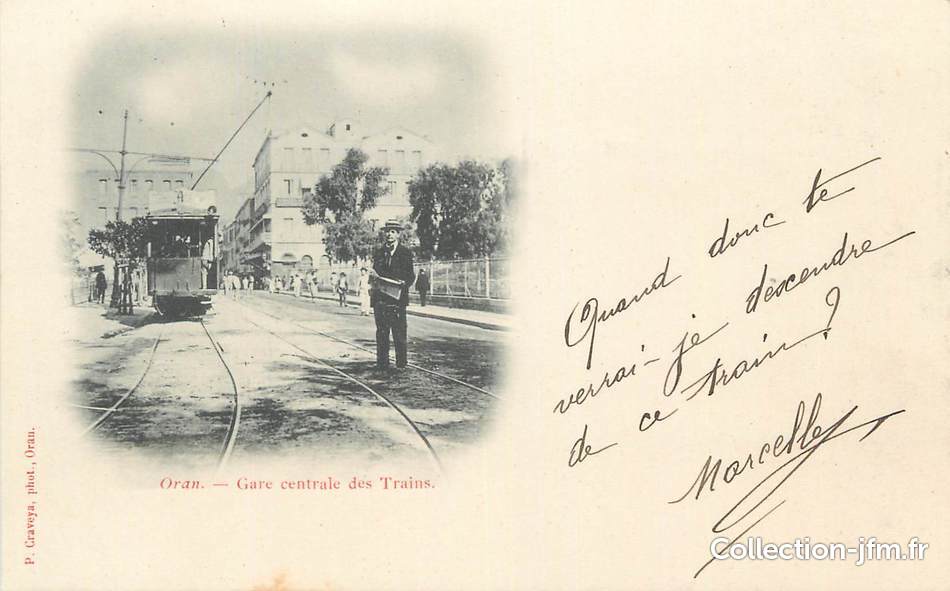 Quand donc te
verrai-je descendre
de ce train?
Marcelle
Oran. — Gare centrale des Trains.
P. Craveya, phot., Oran.
Collection-jfm.fr